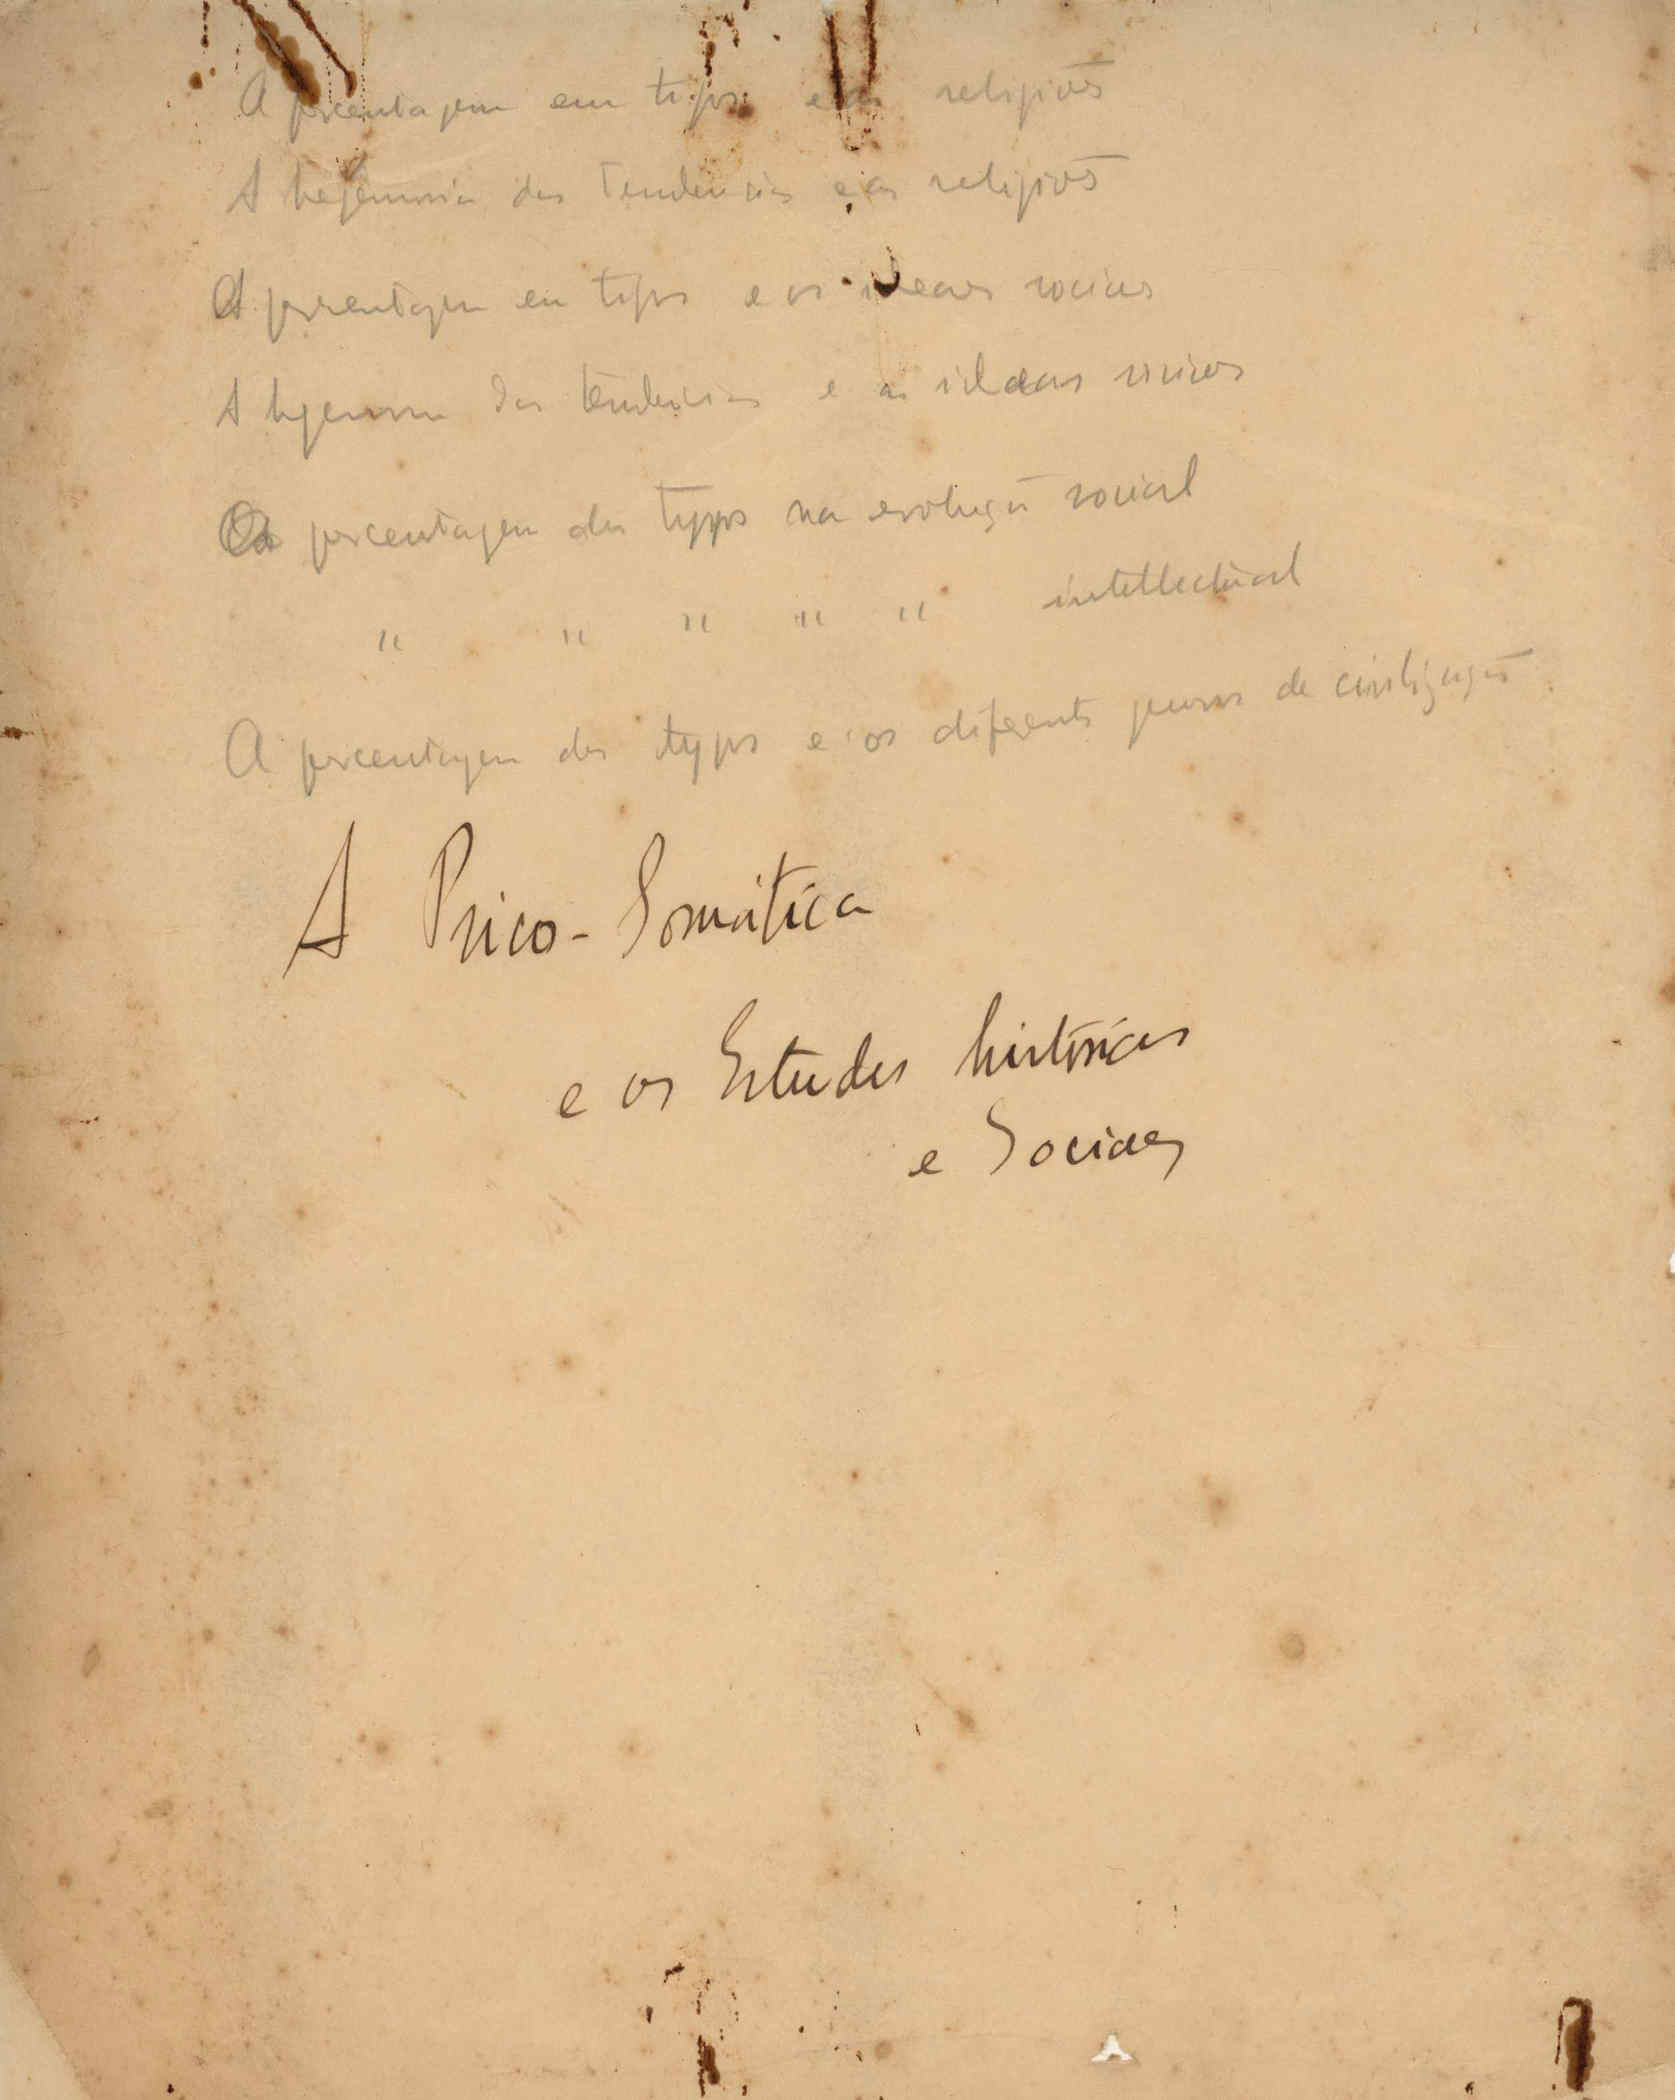 A porcentagem em typos e as religiões
A hegemonia das tendencias e as religiões
A porcentagem em typos e os ideaes sociaes
A hegemonia das tendencias e as ideas
A porcentagem dos typos na evolução social
" " " " " intellectual
A porcentagem dos typos e os diferentes de civilização
A Psico-Somática
e os Estudos históricos
e Sociaes